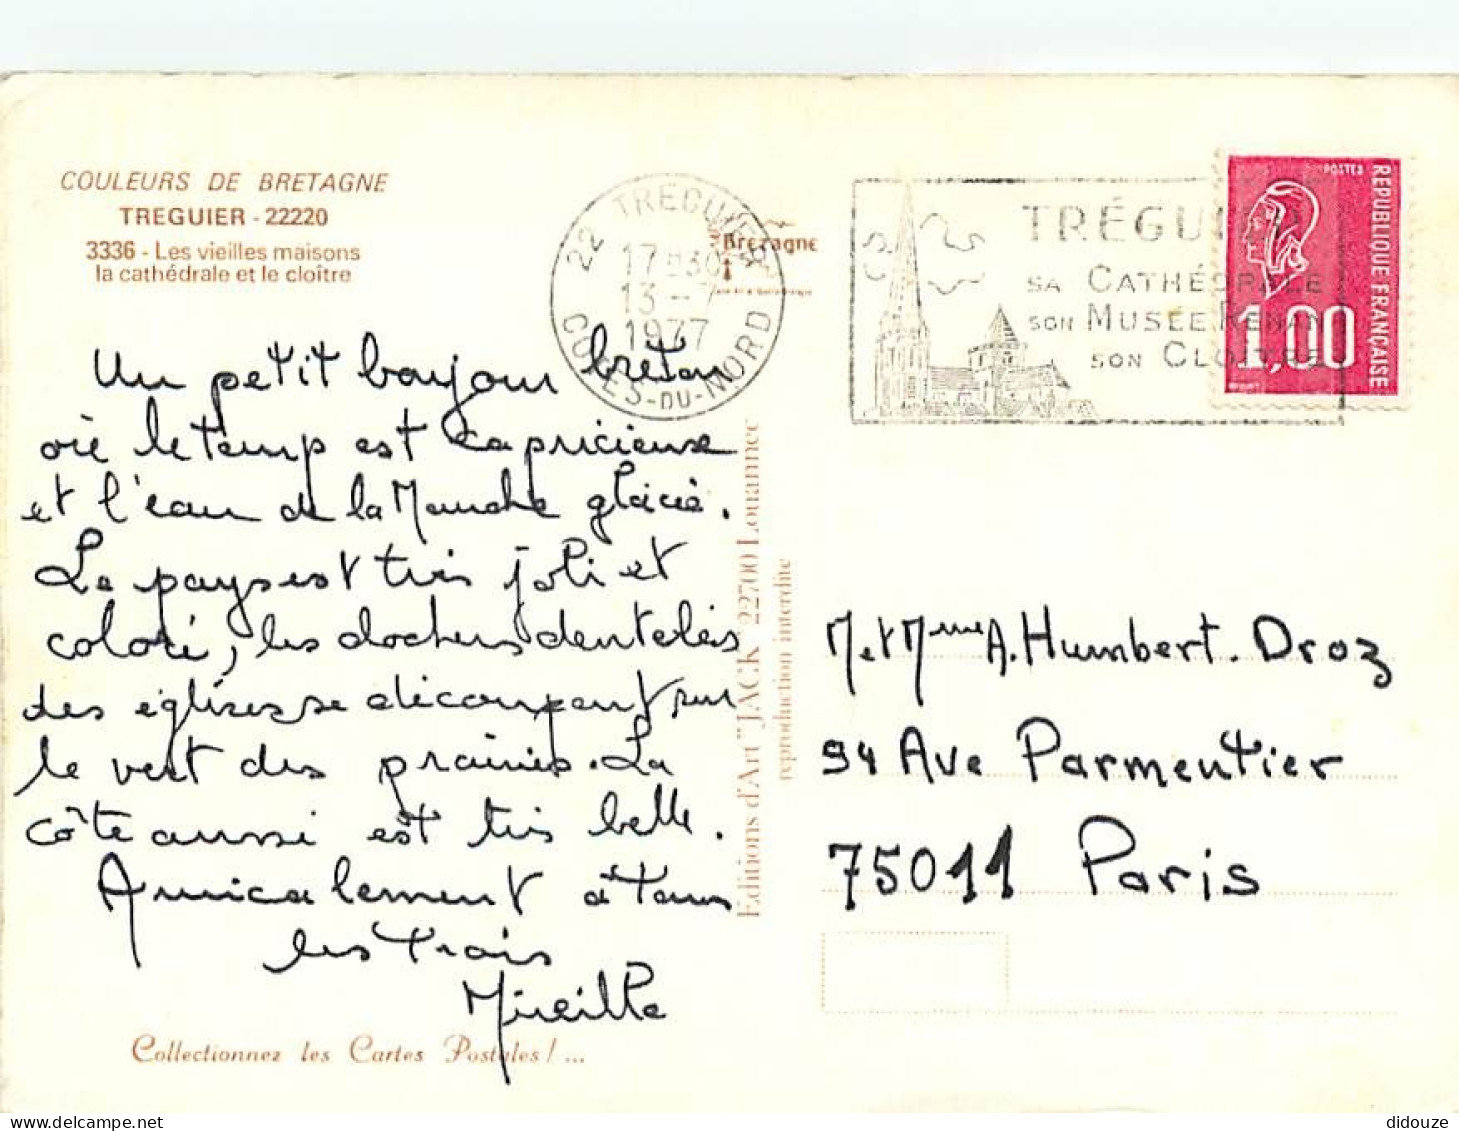 COULEURS DE BRETAGNE
TREGUIER - 22220
3336 - Les vieilles maisons
la cathédrale et le cloître
22 TREGUIER
17H30
13-7
1977
COTES-DU-NORD
Bretagne
TRÉGUIER
SA CATHÉDRALE
SON MUSÉE RENAN
SON CLOITRE
POSTES
REPUBLIQUE FRANÇAISE
1,00
Un petit bonjour breton
où le temps est capricieux
et l'eau de la Manche glacée.
Le pays est très joli et
coloré, les clochers dentelés
des églises se découpent sur
le vert des prairies. La
côte aussi est très belle.
Amicalement à tous
les trois
Mireille
Collectionnez les Cartes Postales ! ...
Editions d'Art "JACK" 22700 Louannec
reproduction interdite
M. et Mme A. Humbert. Droz
94 Ave Parmentier
75011 Paris
didouze